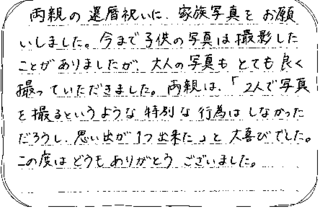 両親の還暦祝いに、家族写真をお願
いしました。今まで子供の写真は撮影した
ことがありましたが、大人の写真もとても良く
撮っていただきました。両親は、「2人で写真
を撮るというような特別な行為はしなかった
だろうし、思い出が1つ出来た」と大喜びでした。
この度はどうもありがとうございました。